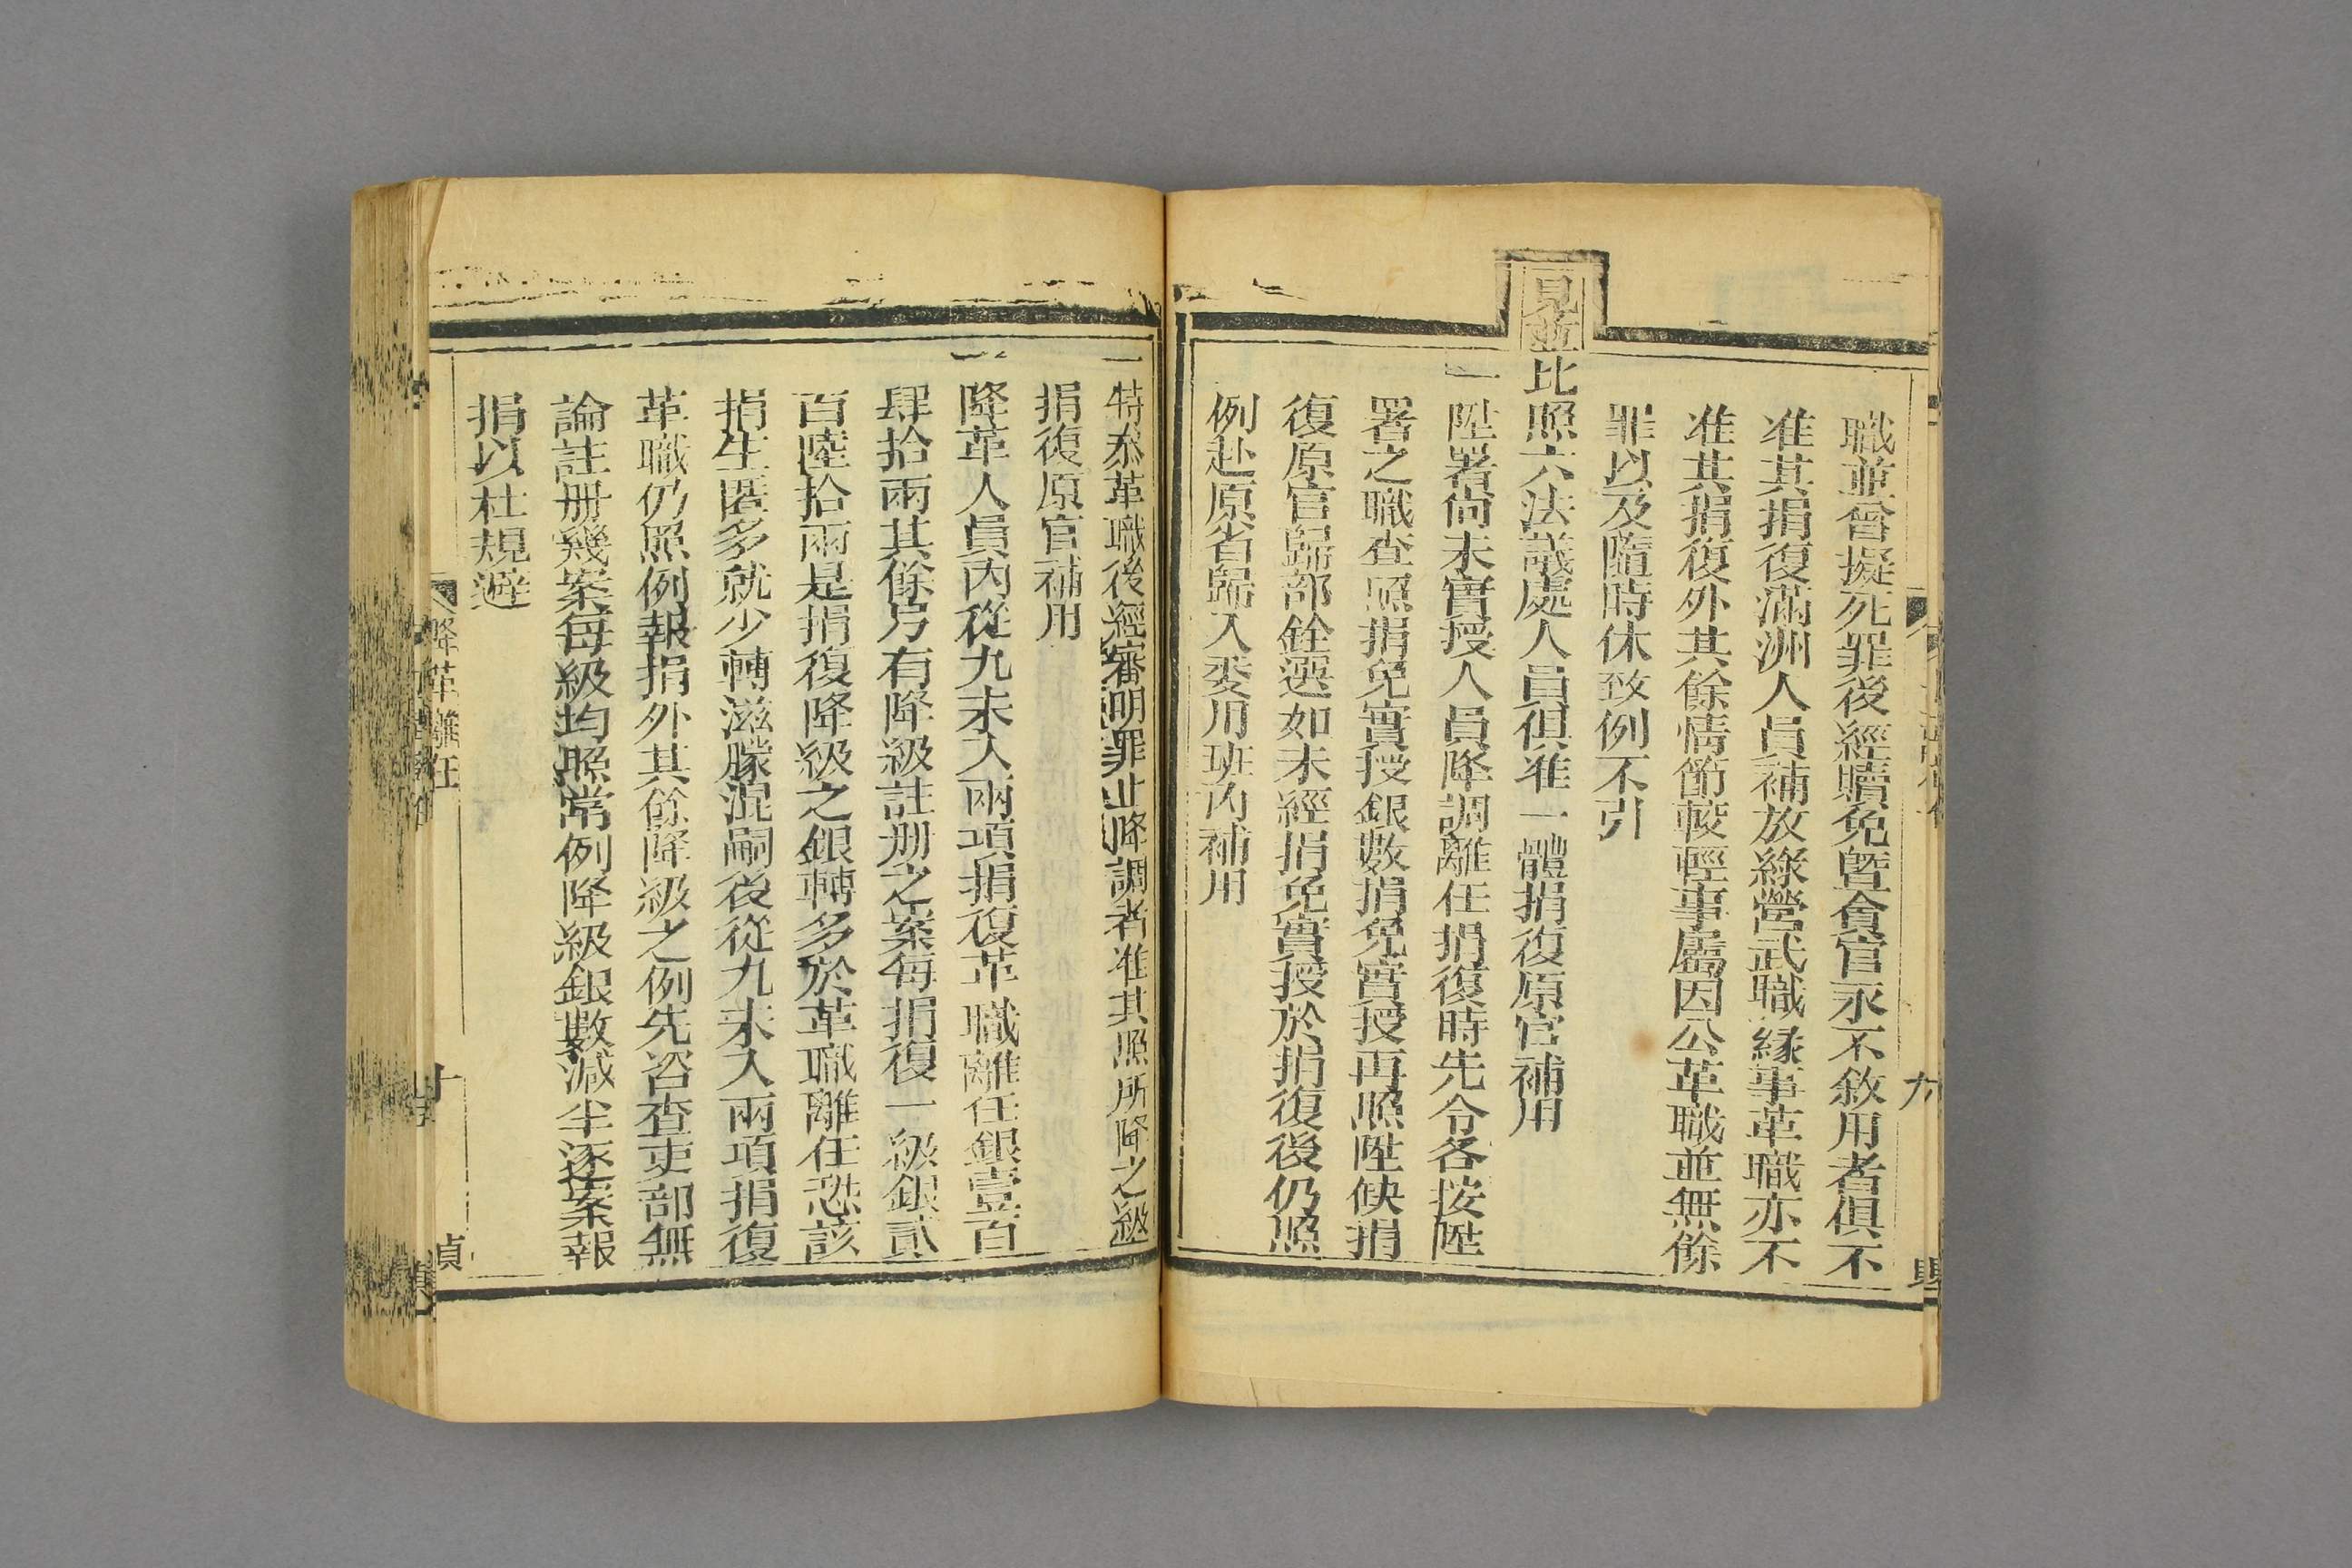 職並曾擬死罪後經贖免暨貪官永不敘用者俱不
准其捐復滿洲人員補放綠營武職緣事革職亦不
准其捐復外其餘情節較輕事屬因公革職並無餘
罪以及隨時休致例不引
見並比照六法議處人員俱准一體捐復原官補用
一陞署尙未實授人員降調離任捐復時先令各按陞
署之職查照捐免實授銀數捐免實授再照陞候捐
復原官歸部銓選如未經捐免實授於捐復後仍照
例赴原省歸入委用班內補用
九
一特叅革職後經審明罪止降調者准其照所降之級
捐復原官補用
一降革人員內從九未入兩項捐復革職離任銀壹百
肆拾兩其餘另有降級註册之案每捐復一級銀貳
百陸拾兩是捐復降級之銀轉多於革職離任恐該
捐生匿多就少轉滋朦混嗣後從九未入兩項捐復
革職仍照例報捐外其餘降級之例先咨查吏部無
論註册幾案每級均照常例降級銀數減半逐案報
捐以杜規避
降革離任
十
貞